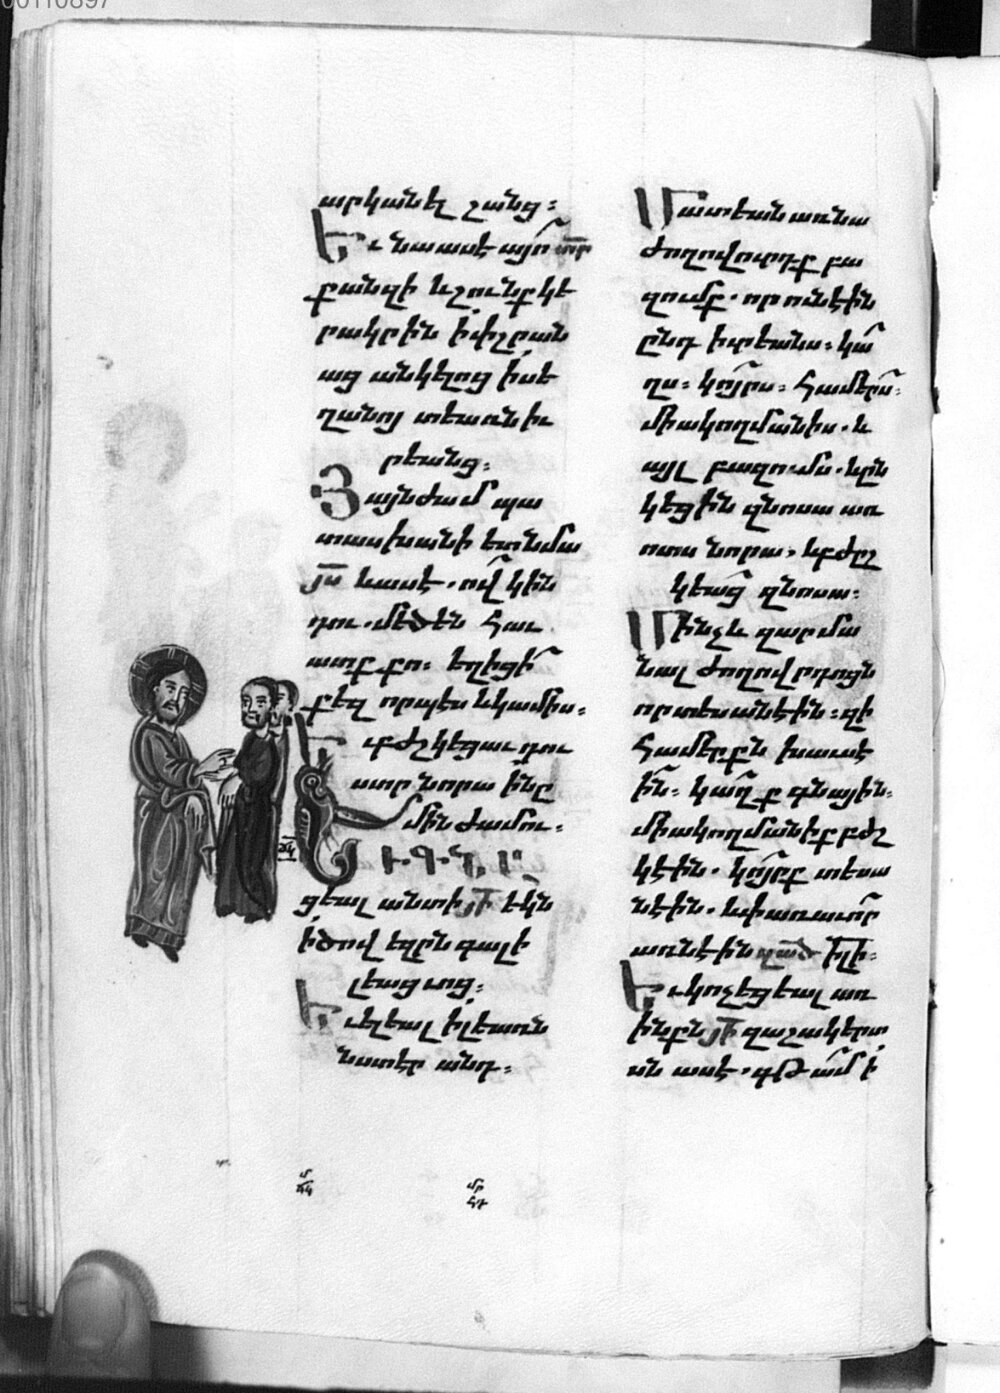 00110897
արկանել շանց։
Եւ նա ասէ այո տր
քանզի և շունք կե
րակրին ի փշրան
աց անկելոց ի սե
ղանոյ տեառն իւ
րեանց։
Յայնժամ պա
տասխանի ետ նմա
յս և ասէ․ ով կին
դու․ մեծ են հաւ
ատք քո։ եղիցի
քեզ որպէս և կամիս։
Եւ բժշկեցաւ դու
ստր նորա ի նը
մին ժամու։
ցեալ անտի յի եկն
ի ծով եզրն գալի
լեացւոց։
Եւ ելեալ ի լեառն
նստէր անդ։
մ
ճկ
մր
հդ
ճկ
Մատեան առ նա
ժողովուրդք բա
զումք․ որ ունէին
ընդ իւրեանս։ կա
ղս։ կոյրս։ համերս։
միակողմանիս․ և
այլ բազումս․ և ըն
կեցին զնոսա առ
ոտս նորա, և բժըշ
կեաց զնոսա։
Մինչև զարմա
նալ ժողովրդոցն
որ տեսանէին։ զի
համերքն խաւսէ
ին։ կաղք գնային։
միակողմանիք բժշ
կէին․ կոյրք տեսա
նէին․ և փառաւոր
առնէին զած իլի։
Եւ կոչեցեալ առ
ինքն յի զաշակերտ
սն ասէ․ գթամ ի